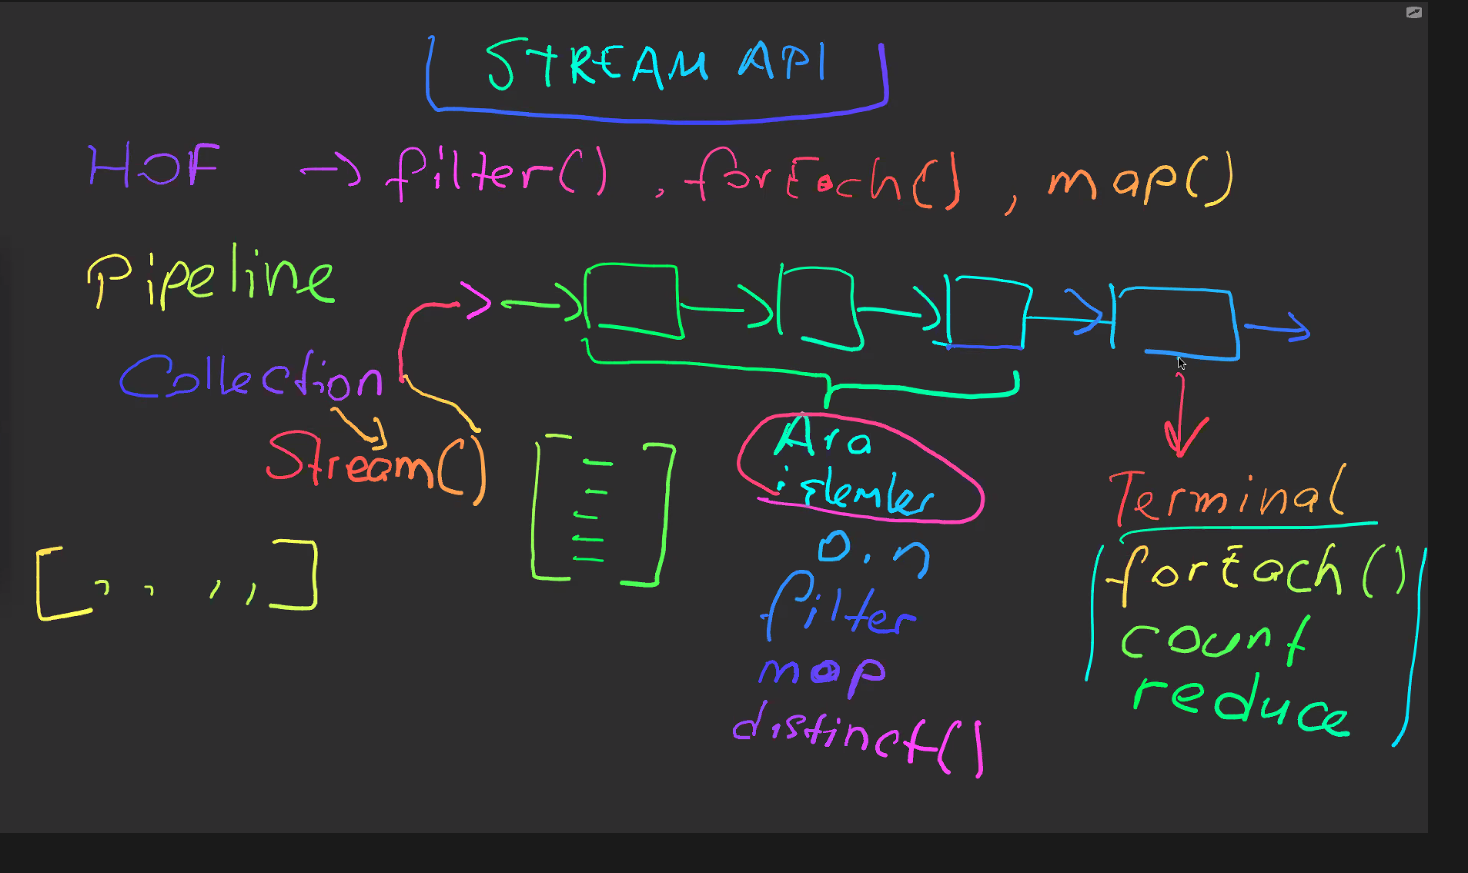 STREAM API
HOF → filter() , forEach() , map()
Pipeline
Collection
Stream()
[ , , , , ]
Ara
işlemler
0, n
filter
map
distinct()
Terminal
forEach()
count
reduce